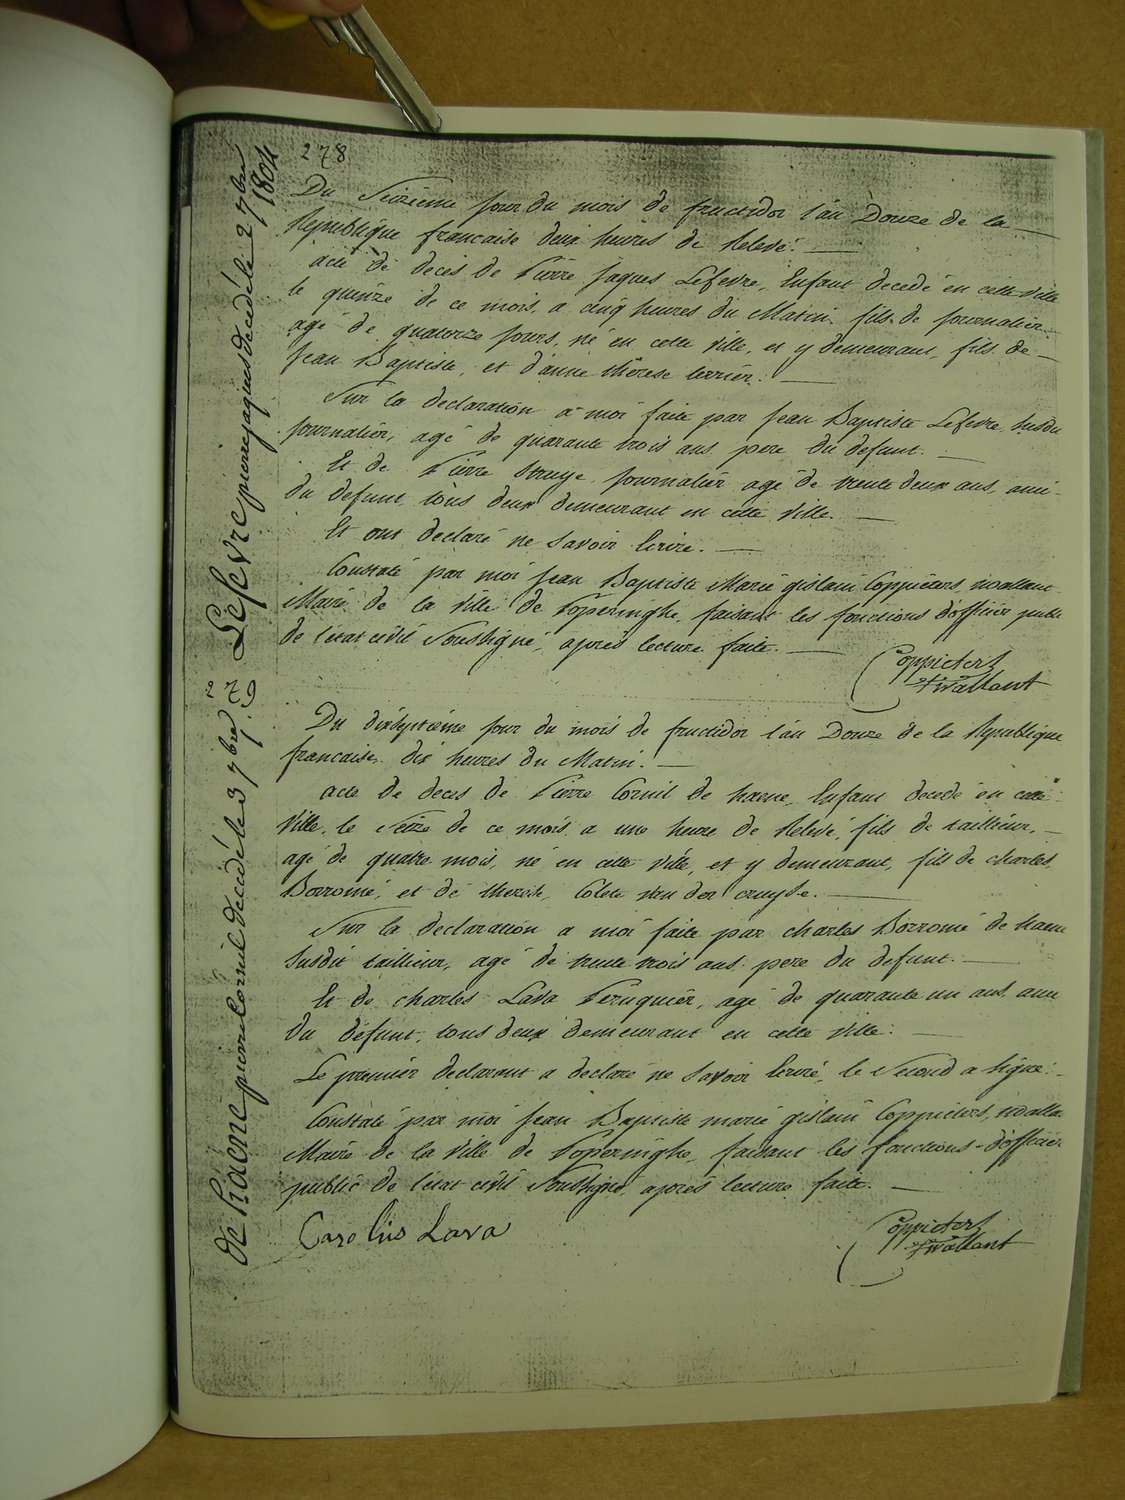 278
LeFevre pierre jaques decédé le 2 7bre 1804
Du Seizieme jour du mois de fructidor l'an Douze de la
Republique francaise deux heures de Relevé.
acte de deces de Pierre Jaques Lefevre, Enfant decedé en cette ville
le quinze de ce mois, a cinq heures du Matin, fils de journalier
agé de quatorze jours, né en cette ville, et y demeurant, fils de
Jean Baptiste, et d'anne thérese
Sur la declaration a moi faite par Jean Baptiste Lefevre susdit
journalier, agé de quarante trois ans, pere du defunt.
Et de Pierre Struye, journalier agé de trente deux ans, ami
du defunt, tous deux demeurant en cette ville.
Et ont declaré ne savoir Ecrire.
Constaté par moi Jean Baptiste Marie gislain Coppieters, twallant
Maire de la ville de Poperinghe, faisant les fonctions d'officier public
de l'état civil Soussigné, apres lecture faite.
Coppieters
twallant
279
de Haene pierre Cornil decedé le 3 7bre
Du dixseptieme jour du mois de fructidor l'an Douze de la Republique
francaise, dix heures du Matin.
acte de deces de Pierre Cornil de haene, Enfant decedé en cette
Ville, le Seize de ce mois, a une heure de Relevé, fils de taillieur,
agé de quatre mois, né en cette ville, et y demeurant, fils de charles
Borromé, et de therese, Colete van der cruyse.
Sur la declaration a moi faite par charles Borromé de haene
susdit taillieur, agé de trente trois ans, pere du defunt.
Et de charles Lava Peruquier, agé de quarante un ans, ami
du defunt, tous deux demeurant en cette ville.
Le premier declarant a declaré ne savoir Ecrire, le Second a signé.
Constaté par moi Jean Baptiste marie gislain Coppieters, twallant
Maire de la ville de Poperinghe, faisant les fonctions d'officier
public de l'état civil Soussigné, après lecture faite.
Carolus Lava
Coppieters
twallant